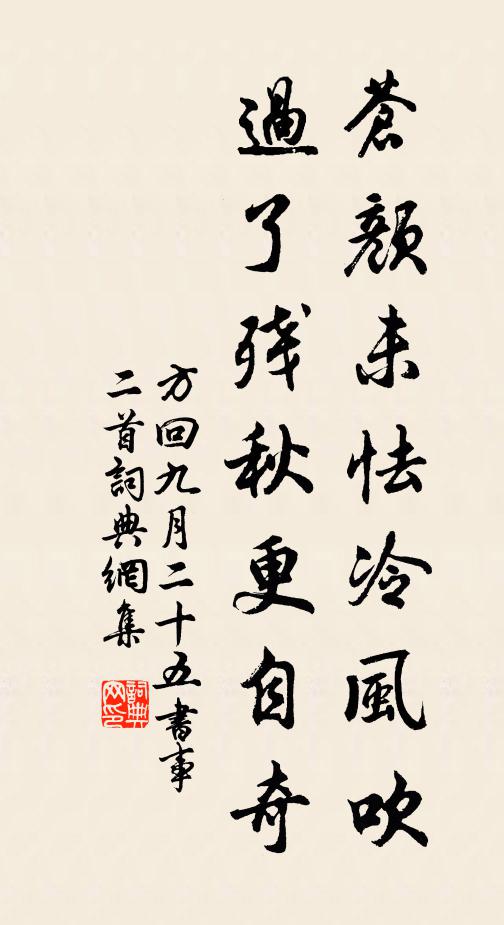 蒼顏未怯冷風吹
過了殘秋更自奇
方回九月二十五書事
二首詞典網集
詞典
网印